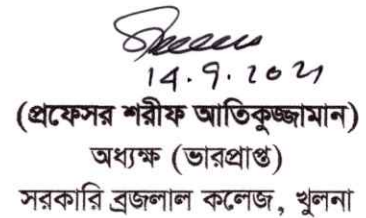 14.9.2021
(প্রফেসর শরীফ আতিকুজ্জামান)
অধ্যক্ষ (ভারপ্রাপ্ত)
সরকারি ব্রজলাল কলেজ, খুলনা